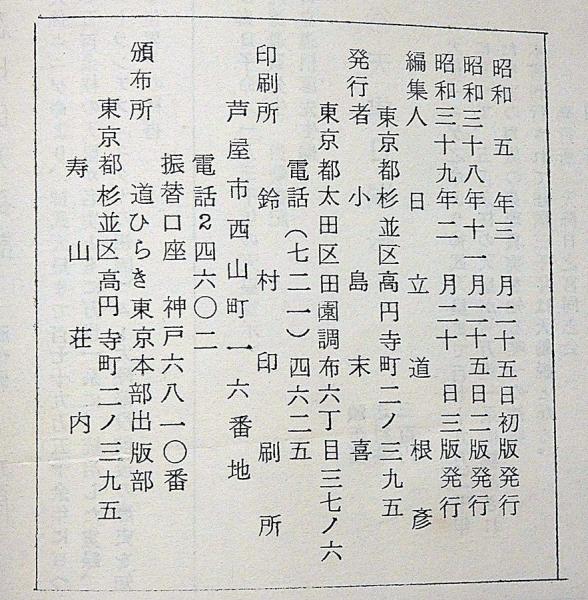 昭和五年三月二十五日初版発行
昭和三十八年十一月二十五日二版発行
昭和三十九年二月二十日三版発行
編集人 日立道根彦
東京都杉並区高円寺町二ノ三九五
発行者 小島末喜
東京都太田区田園調布六丁目三七ノ六
電話（七二一）四六二五
印刷所 鈴村印刷所
芦屋市西山町一六番地
電話2四六〇二
振替口座 神戸六八一〇番
頒布所 道ひらき東京本部出版部
東京都杉並区高円寺町二ノ三九五
寿山荘内